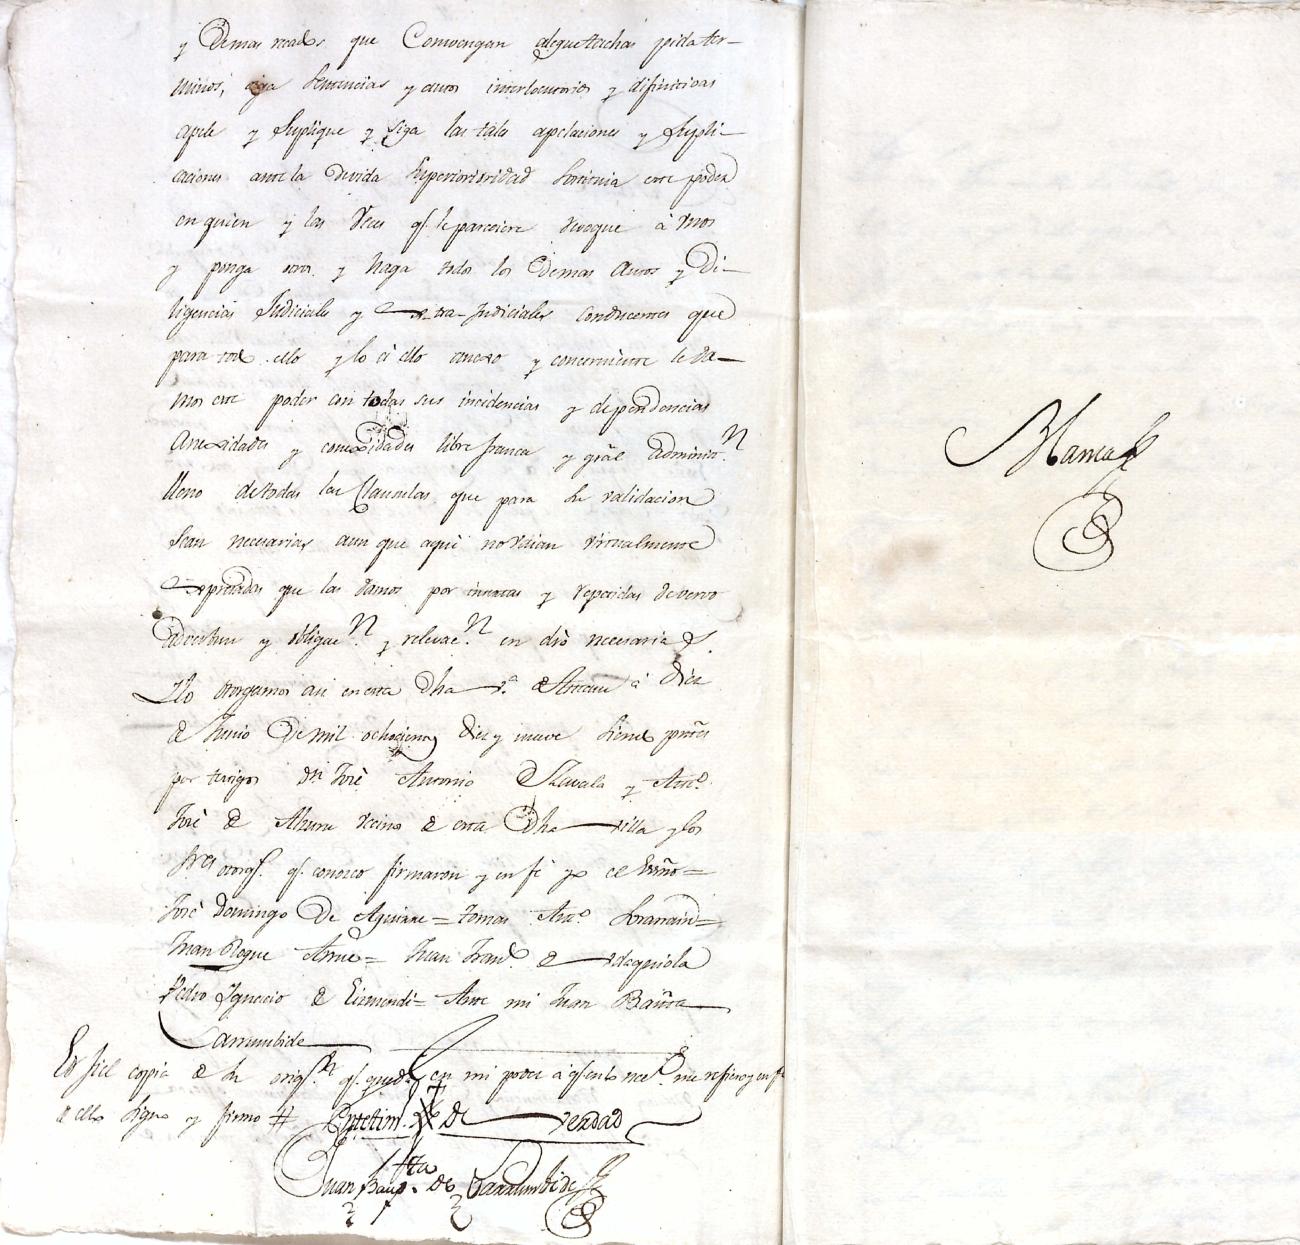 y Demas recados que Convengan alegue tachas pida ter-
minos, oiga Sentencias y autos interlocutorios y difinitivas
apele y Suplique y Siga las tales apelaciones y Supli-
caciones ante la devida Superiorisridad Sostituia este poder
en quien y las Veces q.e le pareciere revoque à unos
y ponga otros y haga todos los demas Autos y Di-
ligencias Judiciales y extra-Judiciales Conducentes que
para todo ello y lo à ello anexo y concerniente le da-
mos este poder con todas sus incidencias y dependencias
Anexidades y conexidades libre franca y grãl Administ.n
lleno de todas las Clausulas que para su validacion
Sean necesarias aun que aqui no vaian virtualmente
expresadas que las damos por insertas y repetidas de vervo
adverbum y obligac.n y relevac.n en dro necesaria
Y lo otorgamos asi en esta Dha v.a de à Diez
de Junio de mil ochocientos diez y nueve Siendo prãtes
por testigos dn José Antonio de Zavala y Ant.o
José de Alzuru vecino de esta Dha villa y los
Sres otorg.s q.e conozco firmaron y en fe yo el Essño=
José Domingo De Aguirre= Tomas Ant.o Larrarain=
Juan Roque Arrue= Juan Fran.co de Edeguiola
Pedro Ignacio de Eizmendi= Ante mi Juan Bauta
Larrumbide
Es fiel copia de su orig.l q.e queda en mi poder à q.e en lo nes.o me refiero y en fe
de ello Signo y firmo # Entestim.o de verdad
Juan Baup.ta de Larrumbide